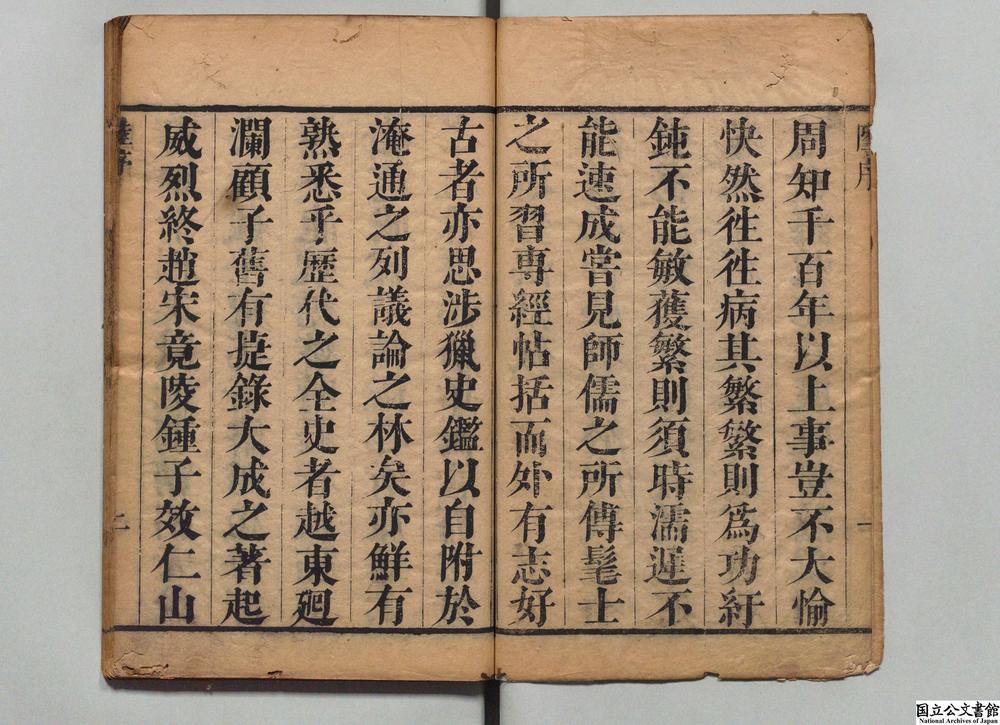 周知千百年以上事豈不大愉
快然徃徃病其繁繁則爲功紆
鈍不能敏蒦繁則須時濡遲不
能速成嘗見師儒之所傳髦士
之所習專經帖括而外有志好
古者亦思涉獵史鑑以自附於
淹通之列議論之林矣亦鮮有
熟悉乎歷代之全史者越東廻
瀾顧子舊有㨗錄大成之著起
威烈終趙宋竟陵鍾子效仁山
一
二
国立公文書館
National Archives of Japan